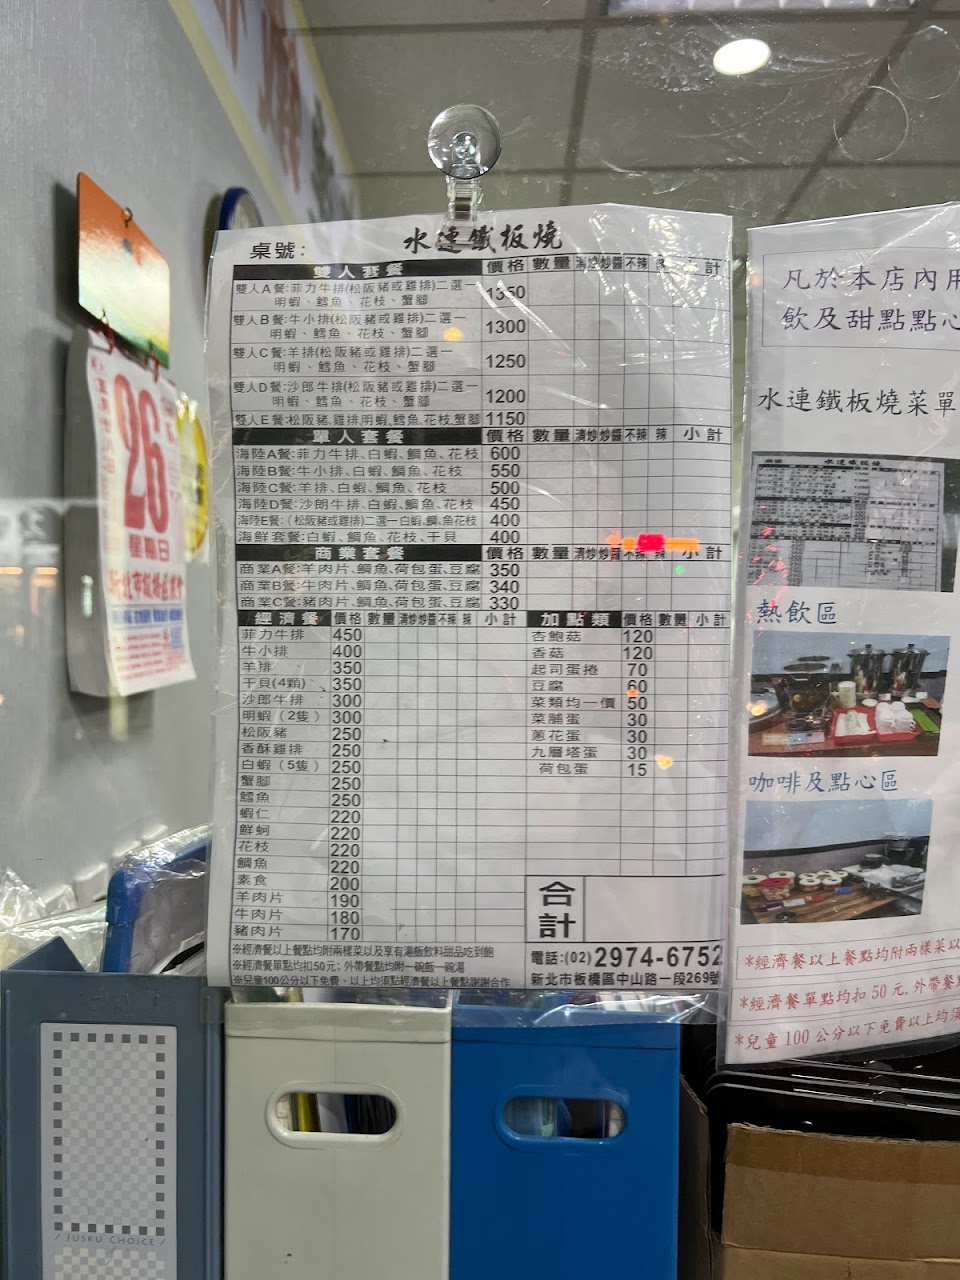 桌號:
水連鐵板燒
雙人套餐 價格 數量 清炒 炒醬 不辣 辣 小計
雙人A餐:菲力牛排(松阪豬或雞排)二選一
明蝦、鱈魚、花枝、蟹腳 1350
雙人B餐:牛小排(松阪豬或雞排)二選一
明蝦、鱈魚、花枝、蟹腳 1300
雙人C餐:羊排(松阪豬或雞排)二選一
明蝦、鱈魚、花枝、蟹腳 1250
雙人D餐:沙郎牛排(松阪豬或雞排)二選一
明蝦、鱈魚、花枝、蟹腳 1200
雙人E餐:松阪豬、雞排明蝦、鱈魚、花枝、蟹腳 1150
單人套餐 價格 數量 清炒 炒醬 不辣 辣 小計
海陸A餐:菲力牛排、白蝦、鯛魚、花枝 600
海陸B餐:牛小排、白蝦、鯛魚、花枝 550
海陸C餐:羊排、白蝦、鯛魚、花枝 500
海陸D餐:沙朗牛排、白蝦、鯛魚、花枝 450
海陸E餐:(松阪豬或雞排)二選一白蝦、鯛魚花枝 400
海鮮套餐:白蝦、鯛魚、花枝、干貝 400
商業套餐 價格 數量 清炒 炒醬 不辣 辣 小計
商業A餐:羊肉片、鯛魚、荷包蛋、豆腐 350
商業B餐:牛肉片、鯛魚、荷包蛋、豆腐 340
商業C餐:豬肉片、鯛魚、荷包蛋、豆腐 330
經濟餐 價格 數量 清炒 炒醬 不辣 辣 小計
菲力牛排 450
牛小排 400
羊排 350
干貝(4顆) 350
沙郎牛排 300
明蝦(2隻) 300
松阪豬 250
香酥雞排 250
白蝦(5隻) 250
蟹腳 250
鱈魚 250
蝦仁 220
鮮蚵 220
花枝 220
鯛魚 220
素食 200
羊肉片 190
牛肉片 180
豬肉片 170
加點類 價格 數量 小計
杏鮑菇 120
香菇 120
起司蛋捲 70
豆腐 60
菜類均一價 50
菜脯蛋 30
蔥花蛋 30
九層塔蛋 30
荷包蛋 15
合計
※經濟餐以上餐點均附兩樣菜以及享有湯飯飲料甜品吃到飽
※經濟餐單點均扣50元;外帶餐點均附一碗飯一碗湯
※兒童100公分以下免費、以上均須點經濟餐以上餐點謝謝合作
電話:(02)2974-6752
新北市板橋區中山路一段269號
凡於本店內用
飲及甜點點心
水連鐵板燒菜單
熱飲區
咖啡及點心區
*經濟餐以上餐點均附兩樣菜以
*經濟餐單點均扣50元,外帶餐
*兒童100公分以下免費以上均須
26
星期日
/ JUSKU CHOICE /